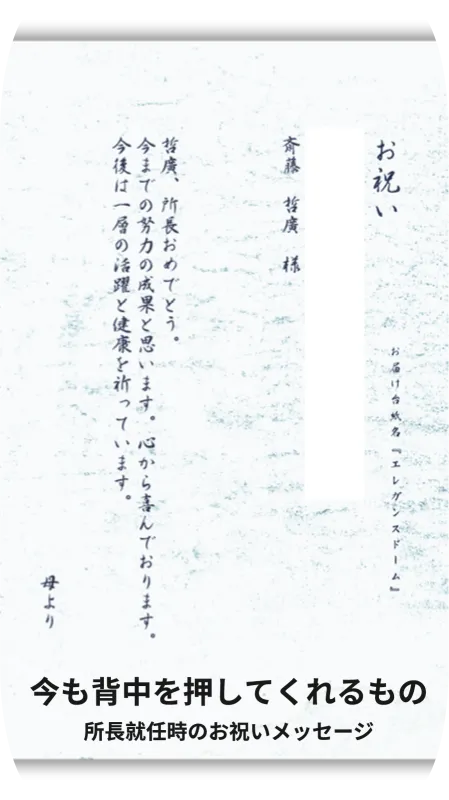 お祝い
お届け台紙名『エレガンスドーム』
斎藤 哲廣 様
哲廣、所長おめでとう。
今までの努力の成果と思います。心から喜んでおります。
今後は一層の活躍と健康を祈っています。
母より
今も背中を押してくれるもの
所長就任時のお祝いメッセージ